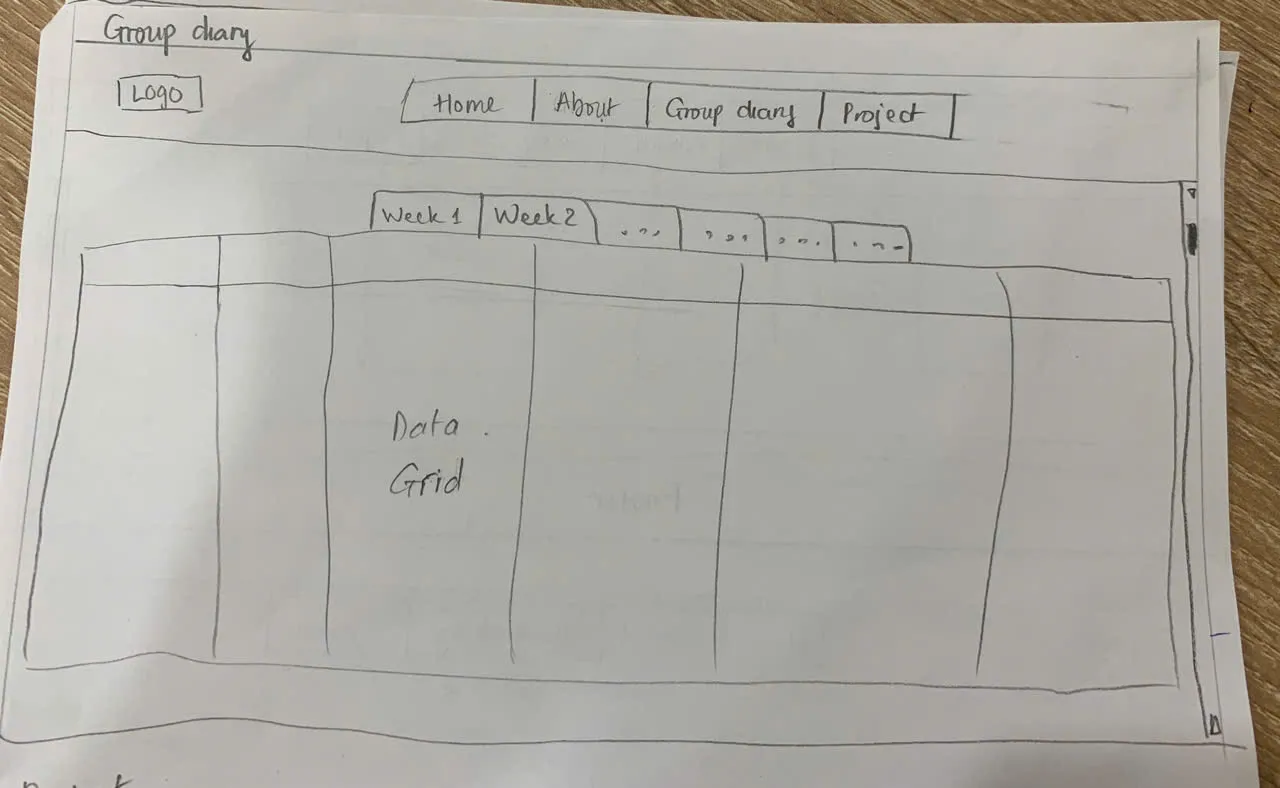 Group diary
LOGO
Home About Group diary Project
Week 1 Week 2 ... ... ... ...
Data
Grid